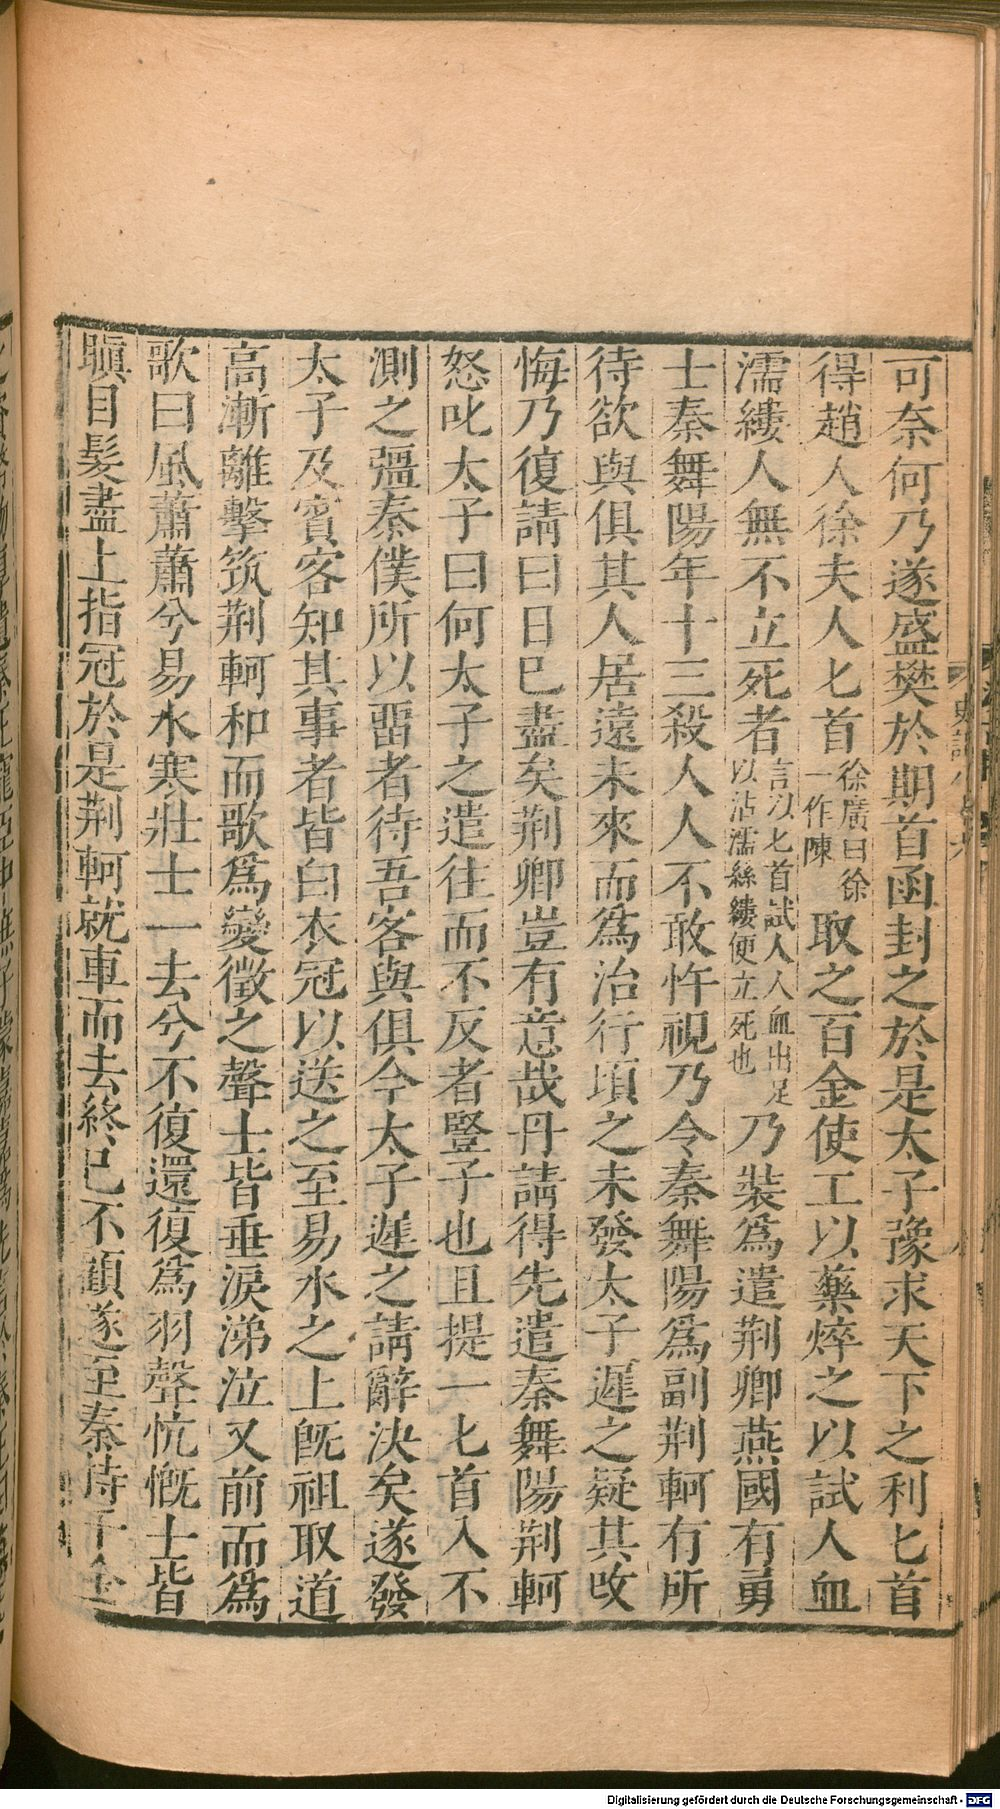 可奈何乃遂盛樊於期首函封之於是太子豫求天下之利匕首
得趙人徐夫人匕首徐廣曰徐一作陳取之百金使工以藥焠之以試人血
濡縷人無不立死者言以匕首試人人血出足以沾濡絲縷便立死也乃裝爲遣荆卿燕國有勇
士秦舞陽年十三殺人人不敢忤視乃令秦舞陽爲副荆軻有所
待欲與俱其人居遠未來而爲治行頃之未發太子遲之疑其改
悔乃復請曰日已盡矣荆卿豈有意哉丹請得先遣秦舞陽荆軻
怒叱太子曰何太子之遣往而不反者豎子也且提一匕首入不
測之彊秦僕所以畱者待吾客與俱今太子遲之請辭決矣遂發
太子及賓客知其事者皆白衣冠以送之至易水之上旣祖取道
高漸離擊筑荆軻和而歌爲變徵之聲士皆垂淚涕泣又前而爲
歌曰風蕭蕭兮易水寒壯士一去兮不復還復爲羽聲忼慨士皆
瞋目髮盡上指冠於是荆軻就車而去終已不顧遂至秦持千金
史記八十六
Digitalisierung gefördert durch die Deutsche Forschungsgemeinschaft - DFG